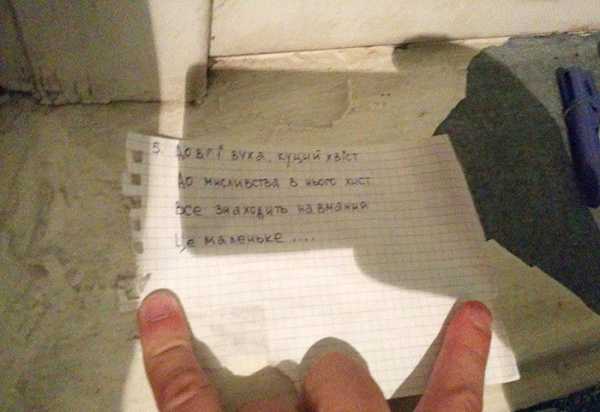 5. Довгі вуха, куций хвіст
До мисливства в нього хист
Все знаходить навмання
Це маленьке ....